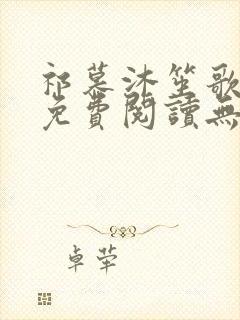 祁慕沐笙歌
免費閱讀無
卓犖